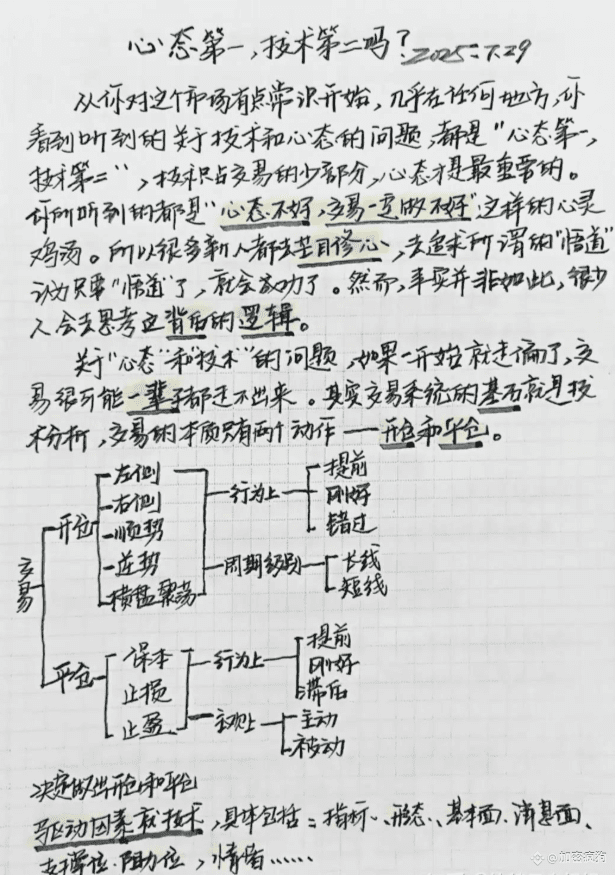 心态第一，技术第二吗？2025.7.29
从你对这个市场有点常识开始，几乎在任何地方，你
看到听到的关于技术和心态的问题，都是“心态第一，
技术第二”，技术只占交易的少部分，心态才是最重要的。
你所听到的都是“心态不好，交易一定做不好”这样的心灵
鸡汤。所以很多新人都去盲目修心，去追求所谓的“悟道”
认为只要“悟道”了，就会成功了。然而，事实并非如此，很少
人会去思考这背后的逻辑。
关于“心态”和“技术”的问题，如果一开始就走偏了，交
易很可能一辈子都走不出来。其实交易系统的基石就是技
术分析，交易的本质只有两个动作——开仓和平仓。
交易
开仓
左侧
右侧
顺势
逆势
横盘震荡
行为上
提前
刚好
错过
周期级别
长线
短线
平仓
保本
止损
止盈
行为上
提前
刚好
滞后
主观上
主动
被动
决定做出开仓和平仓
驱动因素或技术，具体包括：指标、形态、基本面、消息面、
支撑位、阻力位，情绪……
@加密疯狗